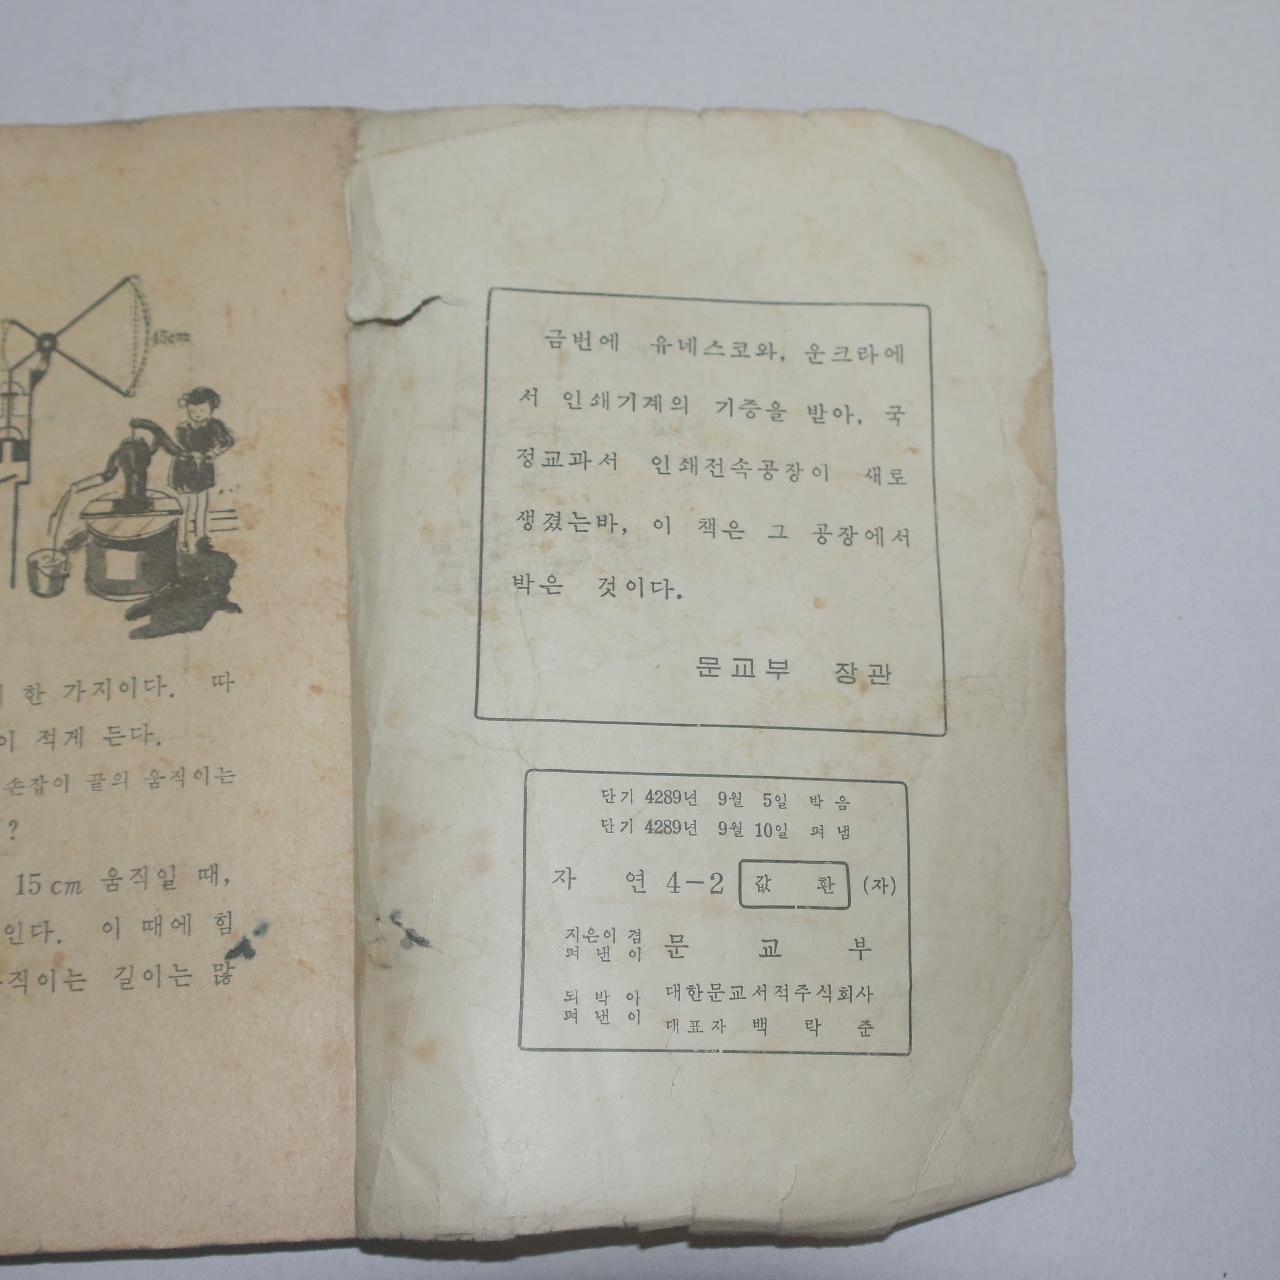 45cm
한 가지이다. 따
이 적게 든다.
손잡이 끝의 움직이는
?
15 cm 움직일 때,
인다. 이 때에 힘
직이는 길이는 많
금번에 유네스코와, 운크라에
서 인쇄기계의 기증을 받아, 국
정교과서 인쇄전속공장이 새로
생겼는바, 이 책은 그 공장에서
박은 것이다.
문교부 장관
단기 4289년 9월 5일 박음
단기 4289년 9월 10일 펴냄
자 연 4-2 값 환 (자)
지은이 겸
펴 낸 이
문 교 부
되 박 아
펴 낸 이
대한문교서적주식회사
대표자 백 락 준